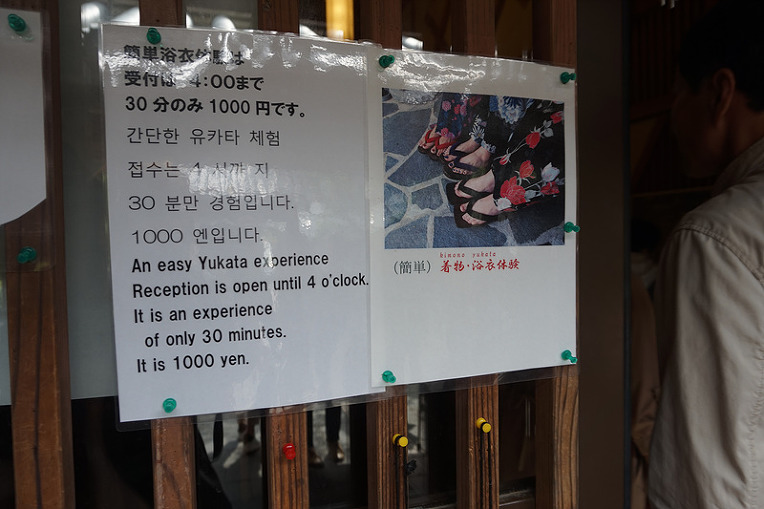 簡単浴衣体験は
受付は 4:00まで
30分のみ 1000円です。
간단한 유카타 체험
접수는 4 시까 지
30 분만 경험입니다.
1000 엔입니다.
An easy Yukata experience
Reception is open until 4 o'clock.
It is an experience
of only 30 minutes.
It is 1000 yen.
kimono yukata
(簡単) 着物・浴衣体験